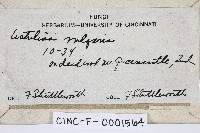 FUNGI
HERBARIUM—UNIVERSITY OF CINCINNATI
vulgaris
10-34
on dead wood nr Greencastle, Ind.
F Shuttleworth F Shuttleworth
CINC-F-0001564